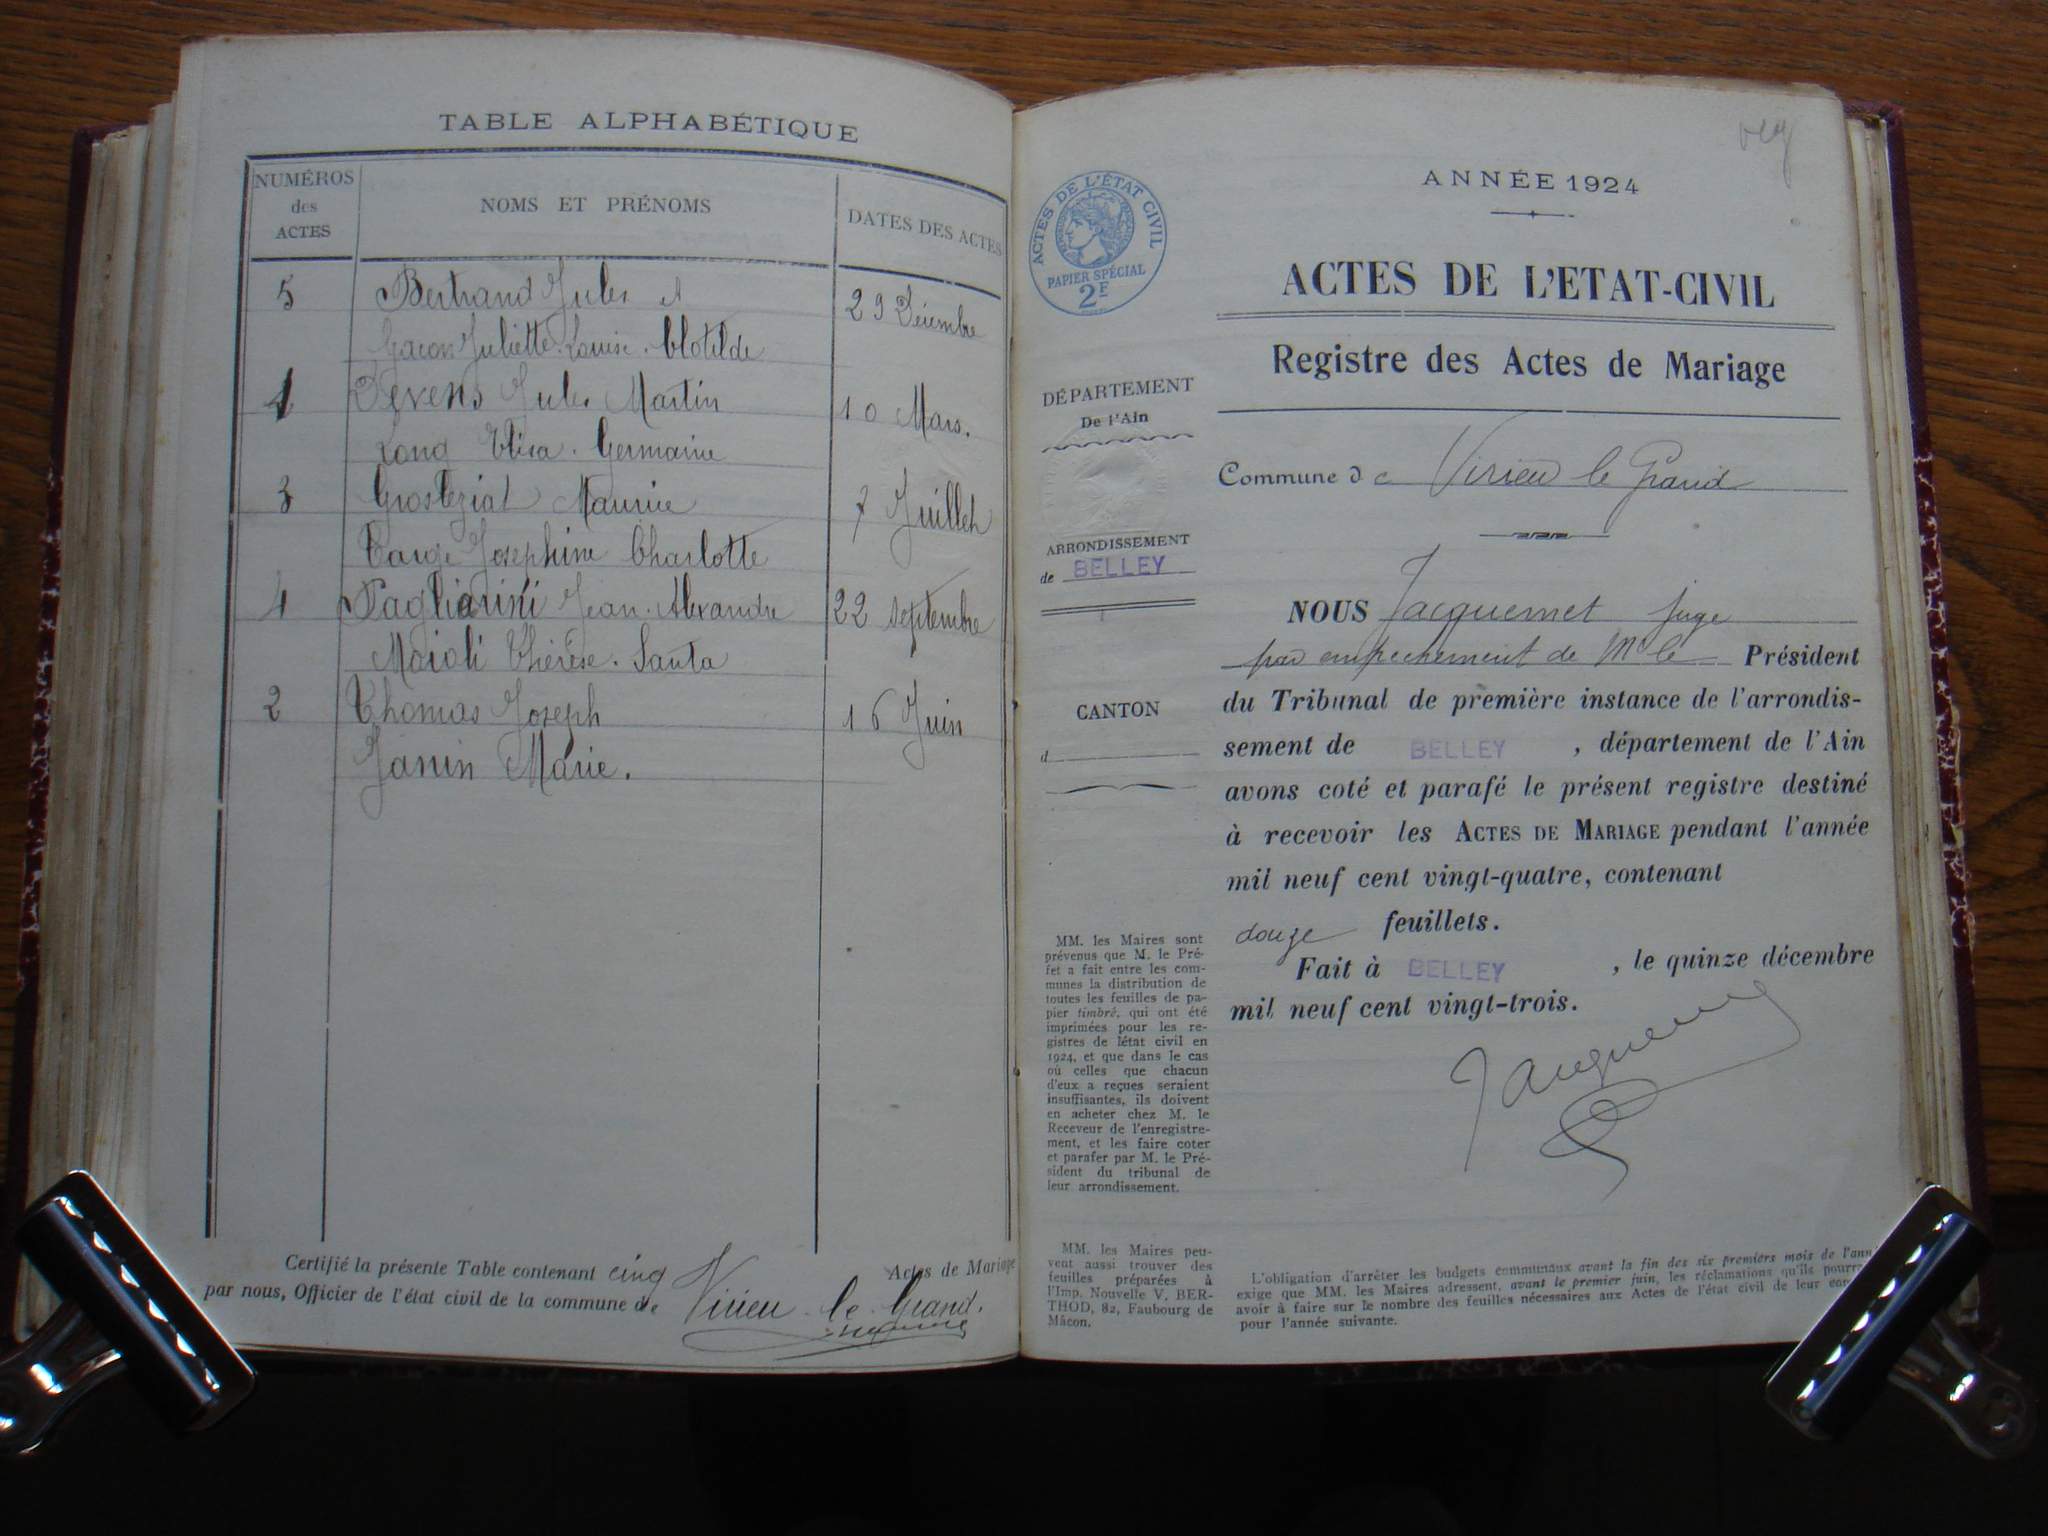 TABLE ALPHABÉTIQUE
NUMÉROS des ACTES
NOMS ET PRÉNOMS
DATES DES ACTES
5 Bertrand Jules et 29 Décembre
Gacon Juliette. Louise. Clotilde
1 Devens Jules Martin 10 Mars.
Long Elisa. Germaine
3 Maurice 7 Juillet
Joséphine Charlotte
4 Pagliarini Jean. Alexandre 22 septembre
Maioli Thérèse. Santa
2 Thomas Joseph 16 Juin
Janin Marie.
Certifié la présente Table contenant cinq Actes de Mariage
par nous, Officier de l'état civil de la commune de Virieu-le-Grand.
ANNÉE 1924
ACTES DE L'ÉTAT CIVIL
PAPIER SPÉCIAL
2F
ACTES DE L'ETAT-CIVIL
Registre des Actes de Mariage
DÉPARTEMENT
De l'Ain
Commune de Virieu le Grand
ARRONDISSEMENT
de BELLEY
CANTON
d
NOUS Jacquemet juge
par empechement de Mr le Président
du Tribunal de première instance de l'arrondis-
sement de BELLEY, département de l'Ain
avons coté et parafé le présent registre destiné
à recevoir les ACTES DE MARIAGE pendant l'année
mil neuf cent vingt-quatre, contenant
douze feuillets.
Fait à BELLEY, le quinze décembre
mil neuf cent vingt-trois.
Jacquemet
MM. les Maires sont
prévenus que M. le Pré-
fet a fait entre les com-
munes la distribution de
toutes les feuilles de pa-
pier timbré, qui ont été
imprimées pour les re-
gistres de létat civil en
1924, et que dans le cas
où celles que chacun
d'eux a reçues seraient
insuffisantes, ils doivent
en acheter chez M. le
Receveur de l'enregistre-
ment, et les faire coter
et parafer par M. le Pré-
sident du tribunal de
leur arrondissement.
MM. les Maires peu-
vent aussi trouver des
feuilles préparées à
l'Imp. Nouvelle V. BER-
THOD, 82, Faubourg de
Mâcon.
L'obligation d'arrêter les budgets communaux avant la fin des six premiers mois de l'ann
exige que MM. les Maires adressent, avant le premier juin, les réclamations qu'ils pourr
avoir à faire sur le nombre des feuilles nécessaires aux Actes de l'état civil de leur com
pour l'année suivante.